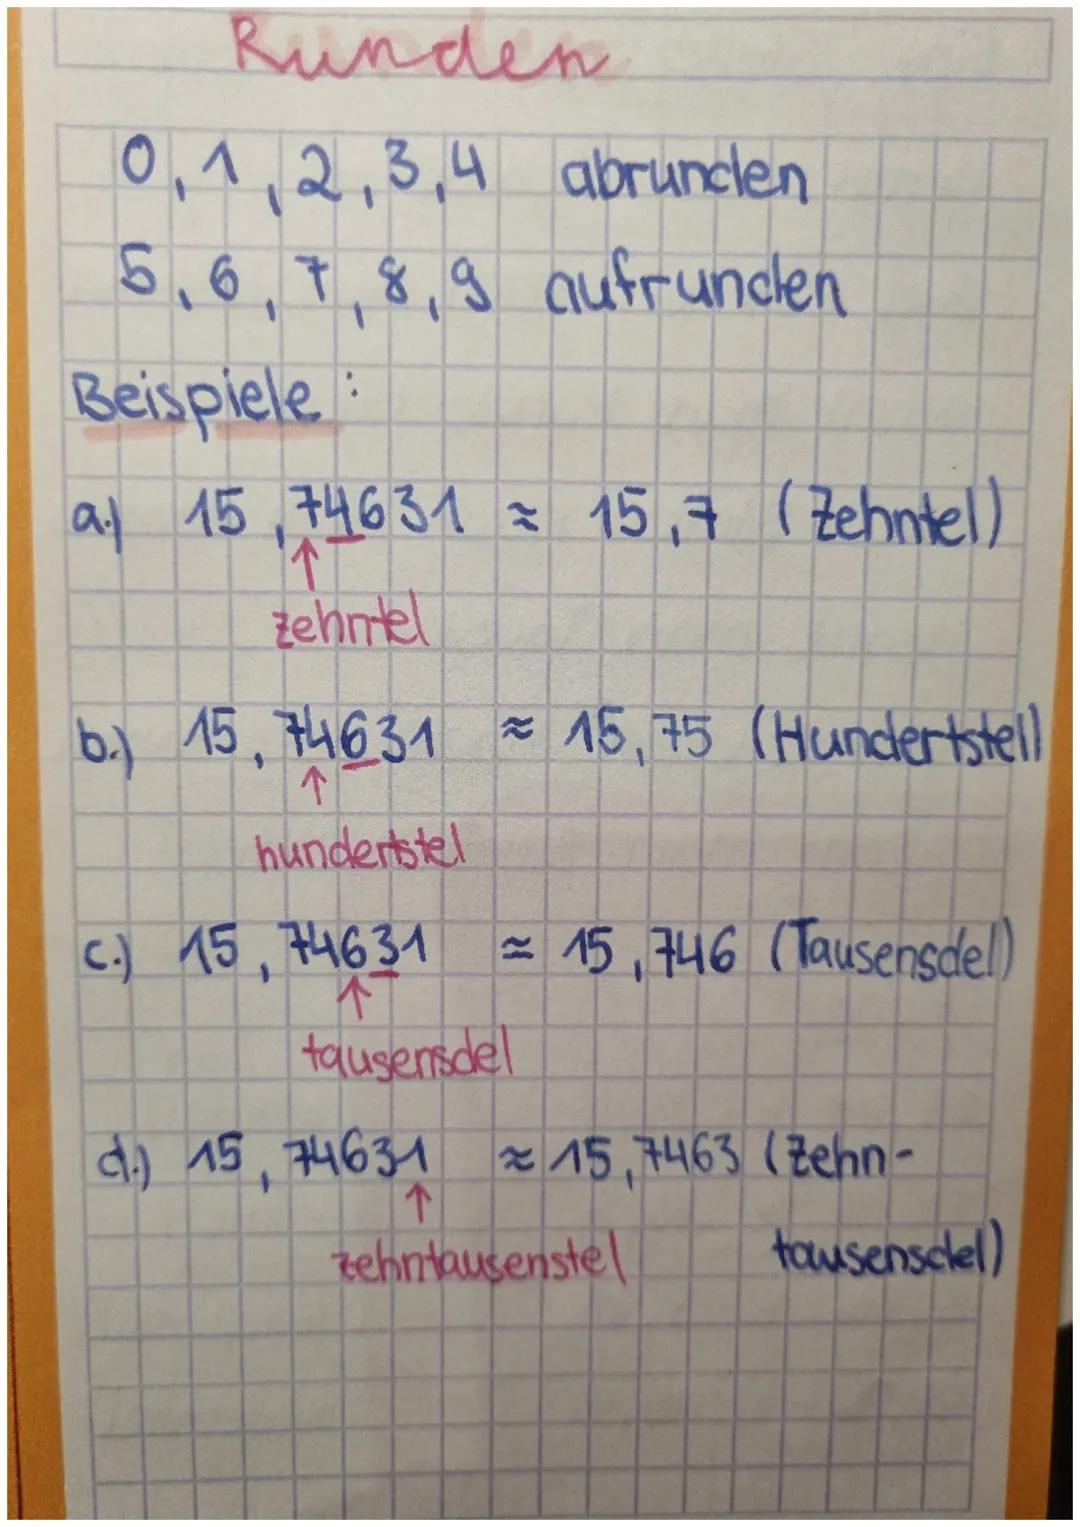 Runden
0, 1, 2, 3, 4 abrunden
5, 6, 7, 8, 9 aufrunden
Beispiele :
a.) 15,74631 ≈ 15,7 (Zehntel)
↑
zehntel
b.) 15,74631 ≈ 15,75 (Hundertstel)
↑
hundertstel
c.) 15,74631 ≈ 15,746 (Tausensdel)
↑
tausensdel
d.) 15,74631 ≈ 15,7463 (Zehn-
↑
zehntausenstel tausensdel)